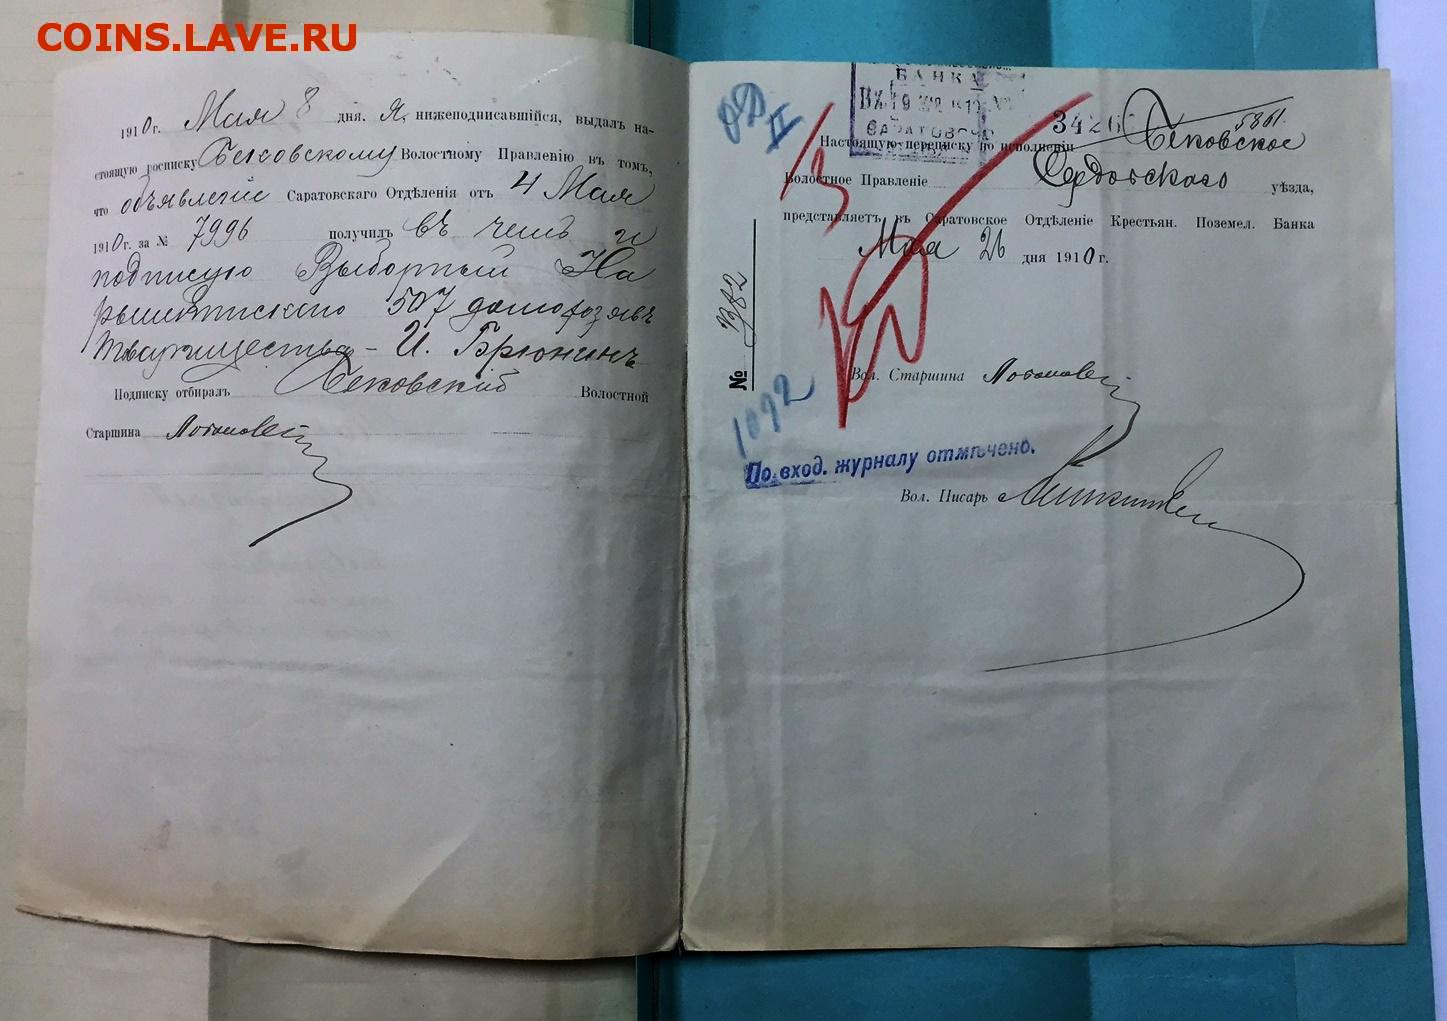 COINS.LAVE.RU
1910г. Мая 8 дня. Я, нижеподписавшійся, выдалъ на-
стоящую росписку Бековскому Волостному Правленію въ томъ,
что объявленіе Саратовскаго Отдѣленія отъ 4 Мая
1910г. за № 7996 получилъ въ чемъ и
подписую Выборный На
рышкинскаго 507 домохозяевъ
товарищества - И. Брюнинъ
Подписку отбиралъ Бековскій Волостной
Старшина
БАНКА
Вх. 19
САРАТОВСКО
РД II
34266
5861.
Настоящую переписку по исполненіи Бековское
Волостное Правленіе Сердобскаго уѣзда,
представляетъ въ Саратовское Отдѣленіе Крестьян. Поземел. Банка
Мая 26 дня 1910г.
№
1092
Вол. Старшина
По вход. журналу отмѣчено.
Вол. Писарь